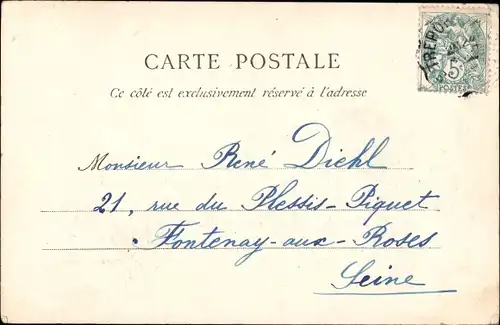 CARTE POSTALE
Ce côté est exclusivement réservé à l'adresse
TREPORT
5c
POSTES
Monsieur René Diehl
21, rue du Plessis-Piquet
Fontenay-aux-Roses
Seine